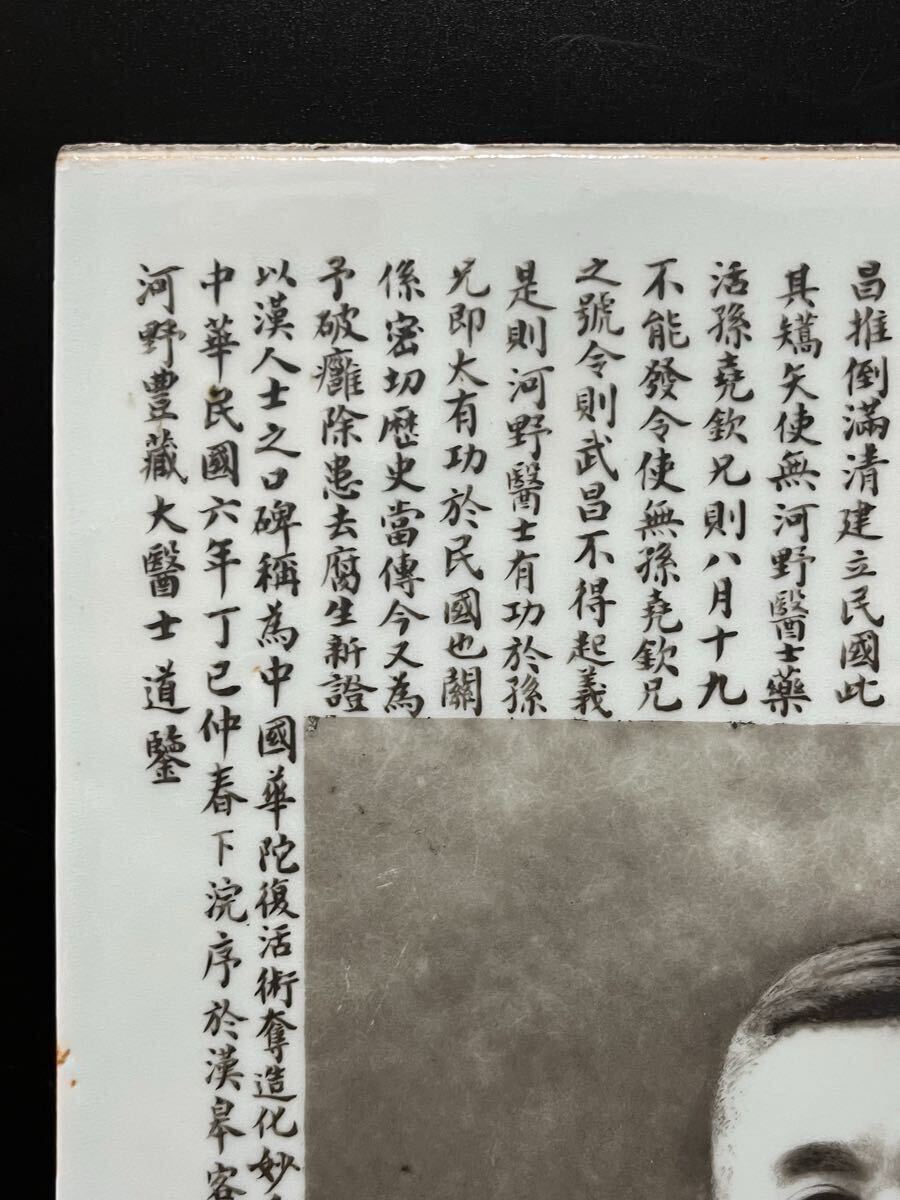 昌推倒滿清建立民國此
其矯矢使無河野醫士藥
活孫堯欽兄則八月十九
不能發令使無孫堯欽兄
之號令則武昌不得起義
是則河野醫士有功於孫
兄即太有功於民國也關
係密切歷史當傳今又為
予破癰除患去腐生新證
以漢人士之口碑稱為中國華陀復活術奪造化妙
中華民國六年丁巳仲春下浣序於漢皋客
河野豐藏大醫士 道鑒